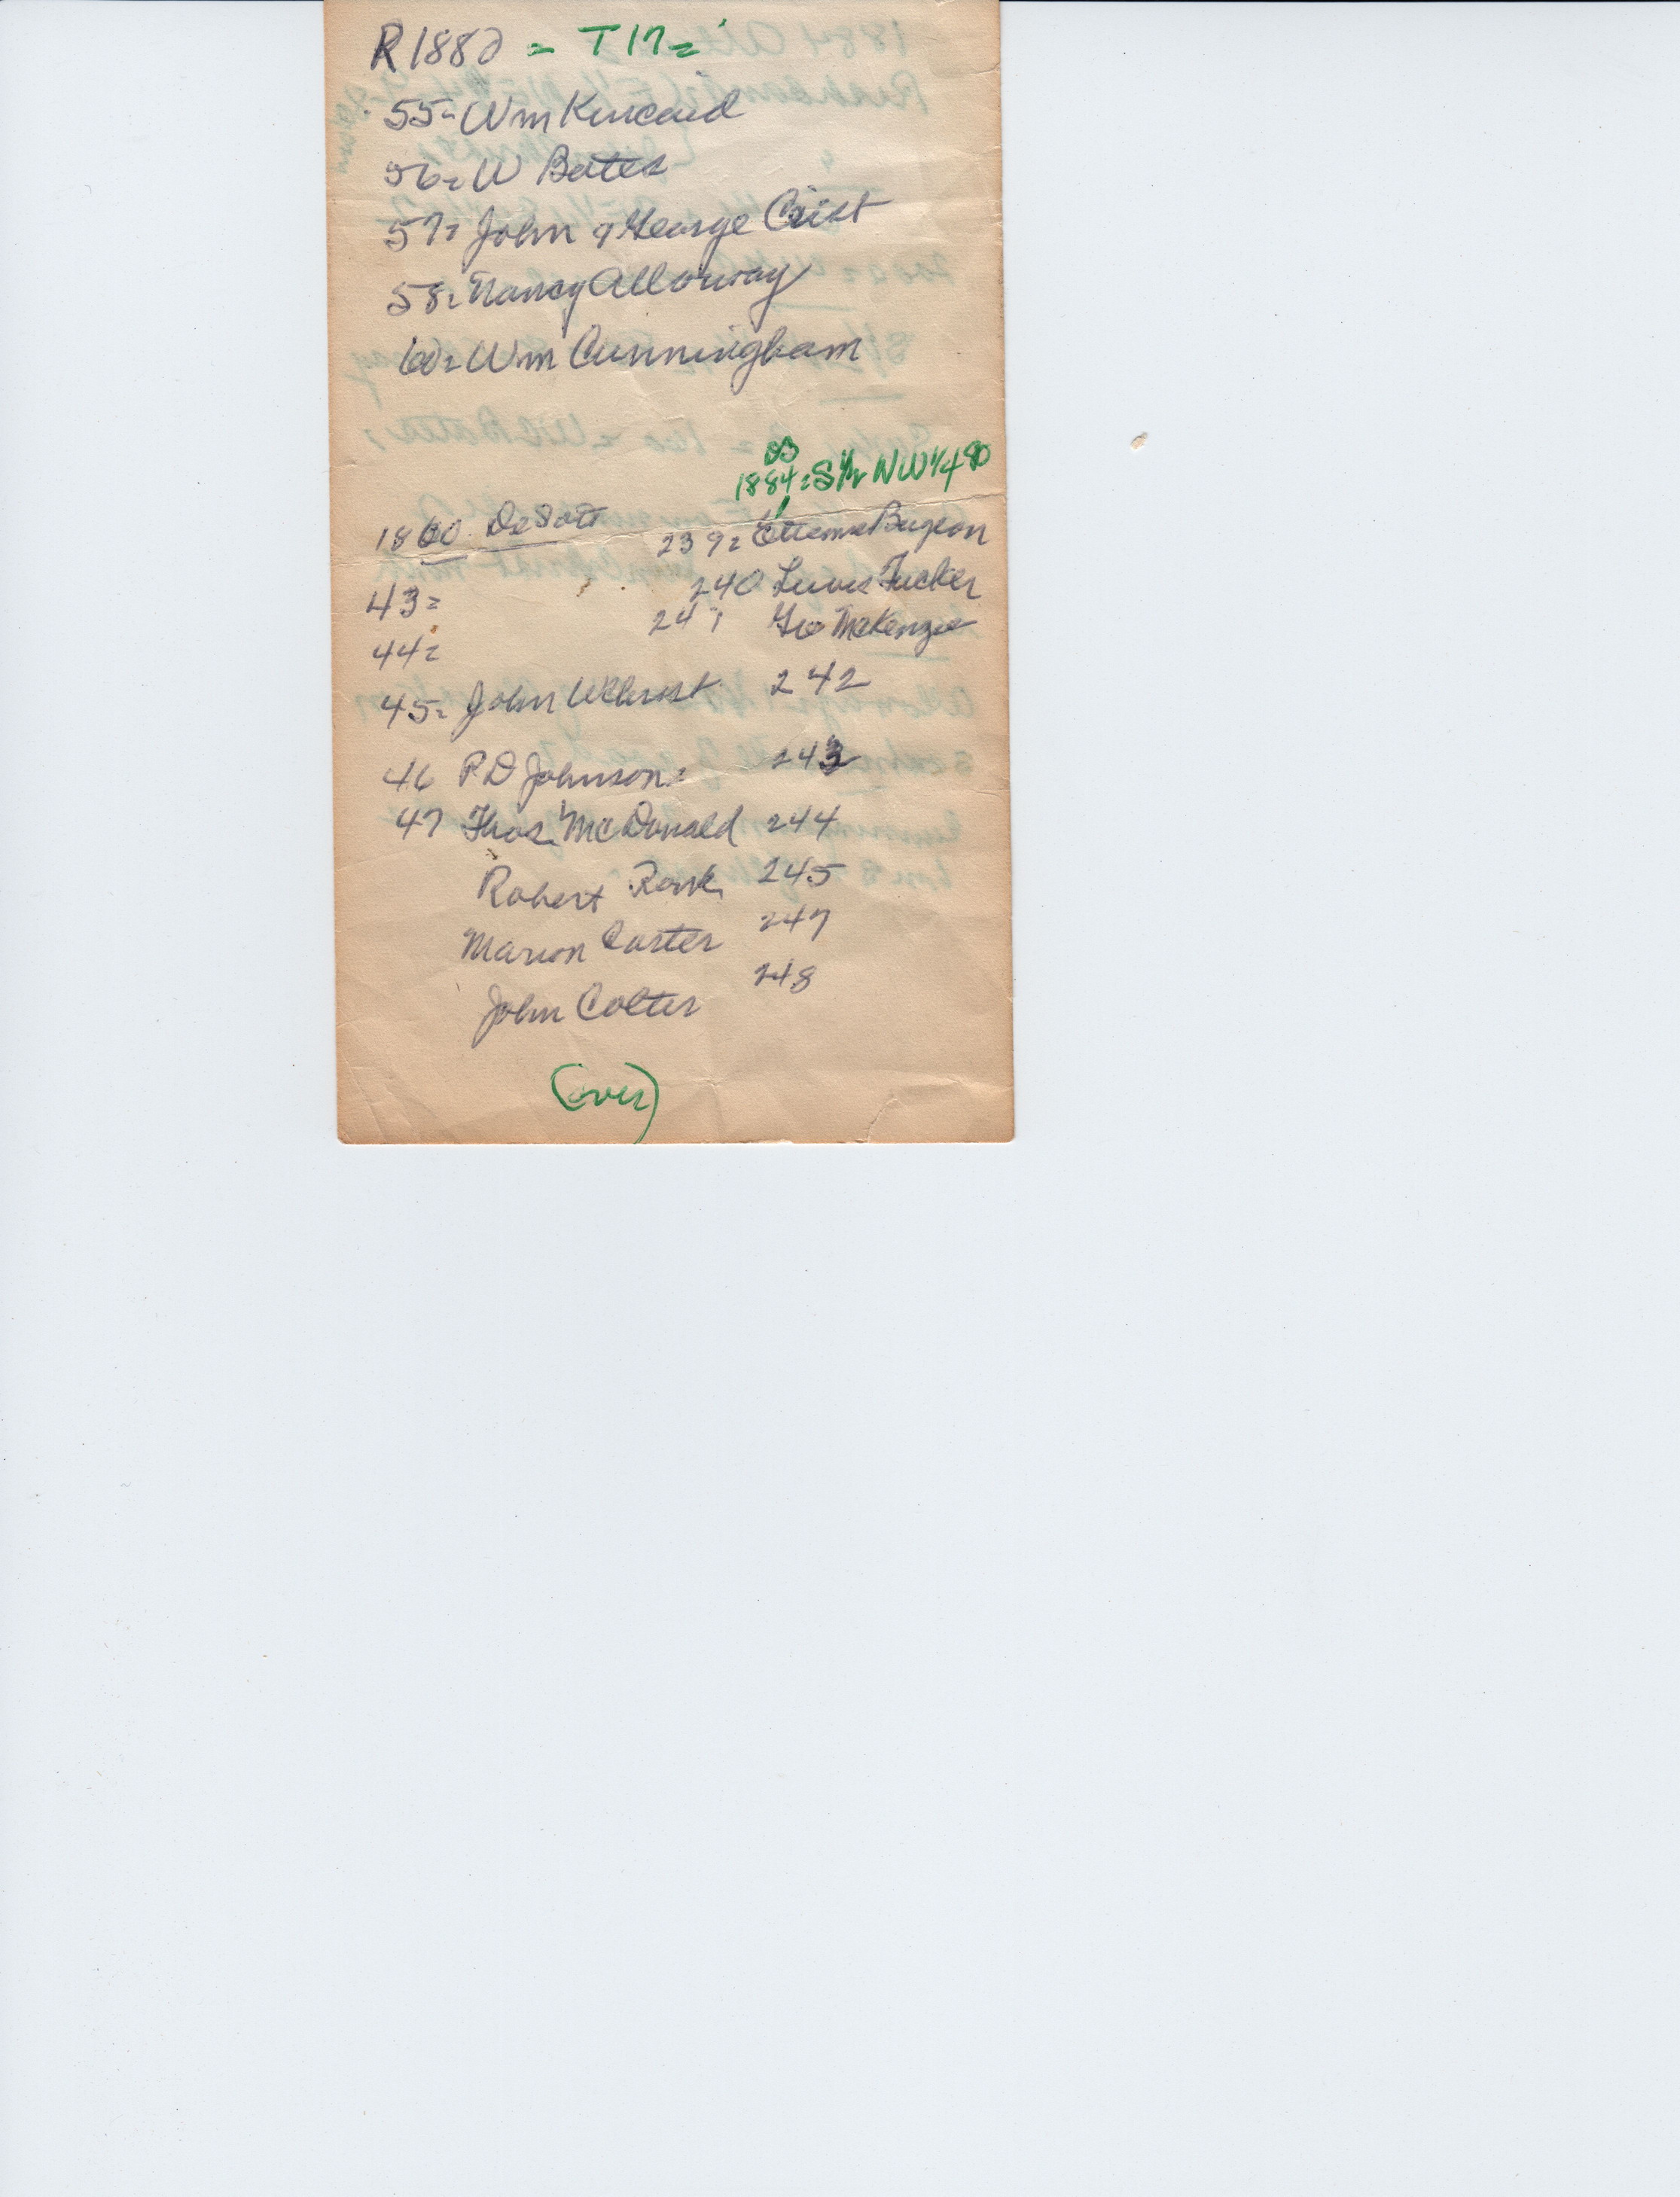 R 1880 = T 17 =
55= Wm Kincaid
56= W Bates
57= John & George Crist
58= Nancy Alloway
60= Wm Cunningham
83
1884= S 1/2 NW 1/4 80
1860 DeSoto 239=
240 Lewis Tucker
43= 241 Geo McKenzie
44=
45= John 242
46 P D Johnson= 243
47 Thos. McDonald 244
Robert 245
Marion Carter 247
John Colter 248
(over)